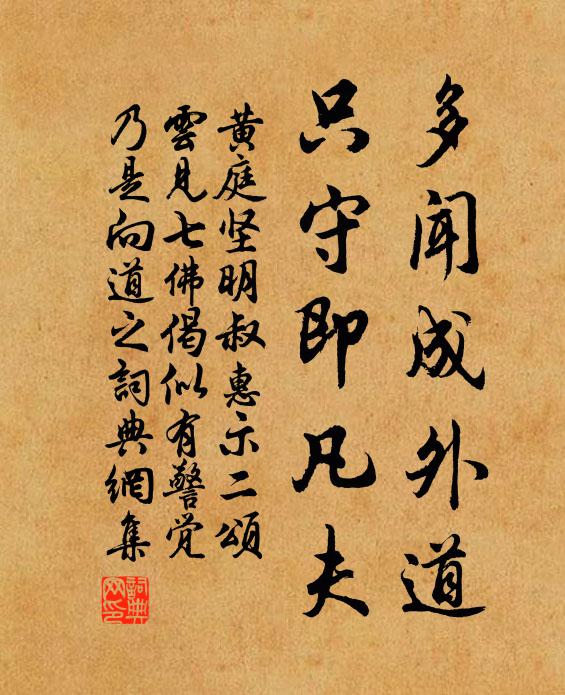 多聞成外道
只守即凡夫
黄庭坚明叔惠示二頌
雲見七佛偈似有警觉
乃是向道之詞典網集
詞典網印